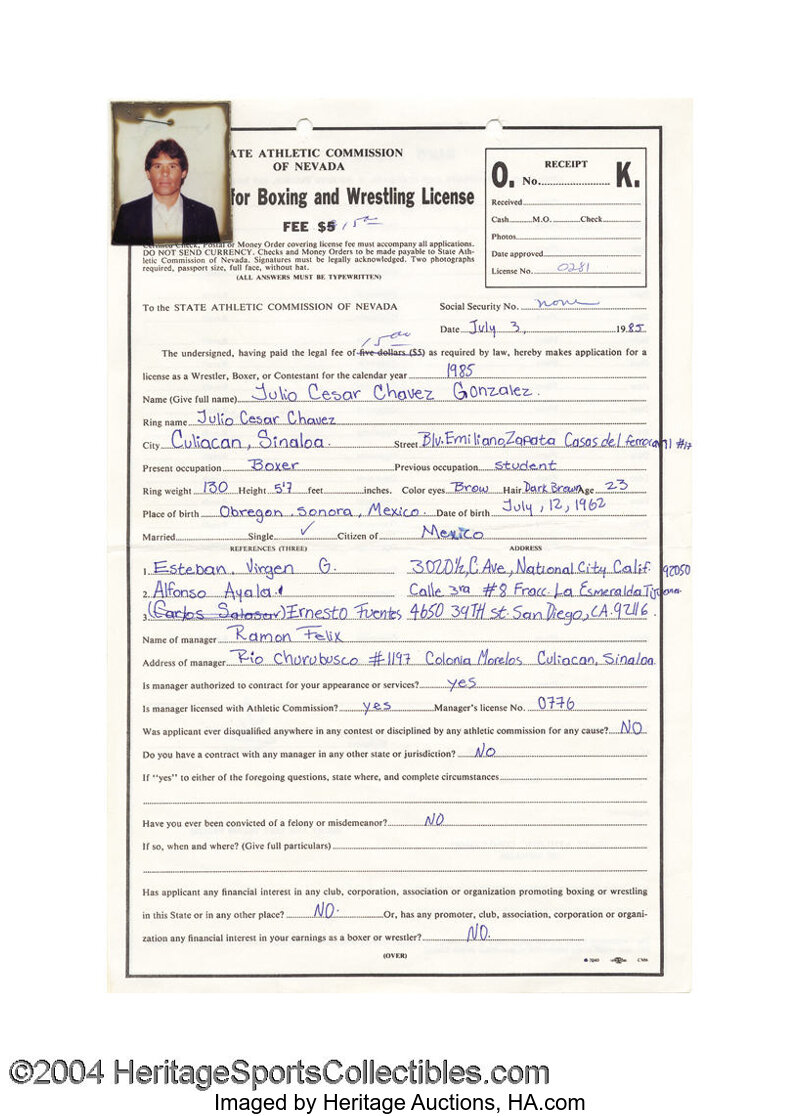 ATE ATHLETIC COMMISSION
OF NEVADA
for Boxing and Wrestling License
FEE $5 15 00
Certified Check, Postal or Money Order covering license fee must accompany all applications.
DO NOT SEND CURRENCY. Checks and Money Orders to be made payable to State Ath-
letic Commission of Nevada. Signatures must be legally acknowledged. Two photographs
required, passport size, full face, without hat.
(ALL ANSWERS MUST BE TYPEWRITTEN)
RECEIPT
O. No. K.
Received
Cash M.O. Check
Photos
Date approved
License No. 0281
To the STATE ATHLETIC COMMISSION OF NEVADA Social Security No. none
Date July 3, 1985
15 00
The undersigned, having paid the legal fee of five dollars ($5) as required by law, hereby makes application for a
license as a Wrestler, Boxer, or Contestant for the calendar year 1985
Name (Give full name) Julio Cesar Chavez Gonzalez.
Ring name Julio Cesar Chavez
City Culiacan, Sinaloa. Street Blv. Emiliano Zapata Casas del ferrocarril #17
Present occupation Boxer Previous occupation student
Ring weight 130 Height 5'7 feet inches. Color eyes Brow Hair Dark Brown Age 23
Place of birth Obregon, Sonora, Mexico. Date of birth July, 12, 1962
Married Single ✓ Citizen of Mexico
REFERENCES (THREE) ADDRESS
1. Esteban, Virgen G. 3020½, C Ave, National City Calif. 92050
2. Alfonso Ayala. Calle 3ra #8 Fracc. La Esmeralda Tijuana
3. (Carlos Salazar) Ernesto Fuentes 4650 39TH st. San Diego, CA. 92116.
Name of manager Ramon Felix
Address of manager Rio Churubusco #1197 Colonia Morelos Culiacan, Sinaloa.
Is manager authorized to contract for your appearance or services? yes
Is manager licensed with Athletic Commission? yes Manager's license No. 0776
Was applicant ever disqualified anywhere in any contest or disciplined by any athletic commission for any cause? NO
Do you have a contract with any manager in any other state or jurisdiction? NO
If "yes" to either of the foregoing questions, state where, and complete circumstances
Have you ever been convicted of a felony or misdemeanor? NO
If so, when and where? (Give full particulars)
Has applicant any financial interest in any club, corporation, association or organization promoting boxing or wrestling
in this State or in any other place? NO. Or, has any promoter, club, association, corporation or organi-
zation any financial interest in your earnings as a boxer or wrestler? NO.
(OVER)
©2004 HeritageSportsCollectibles.com
Imaged by Heritage Auctions, HA.com